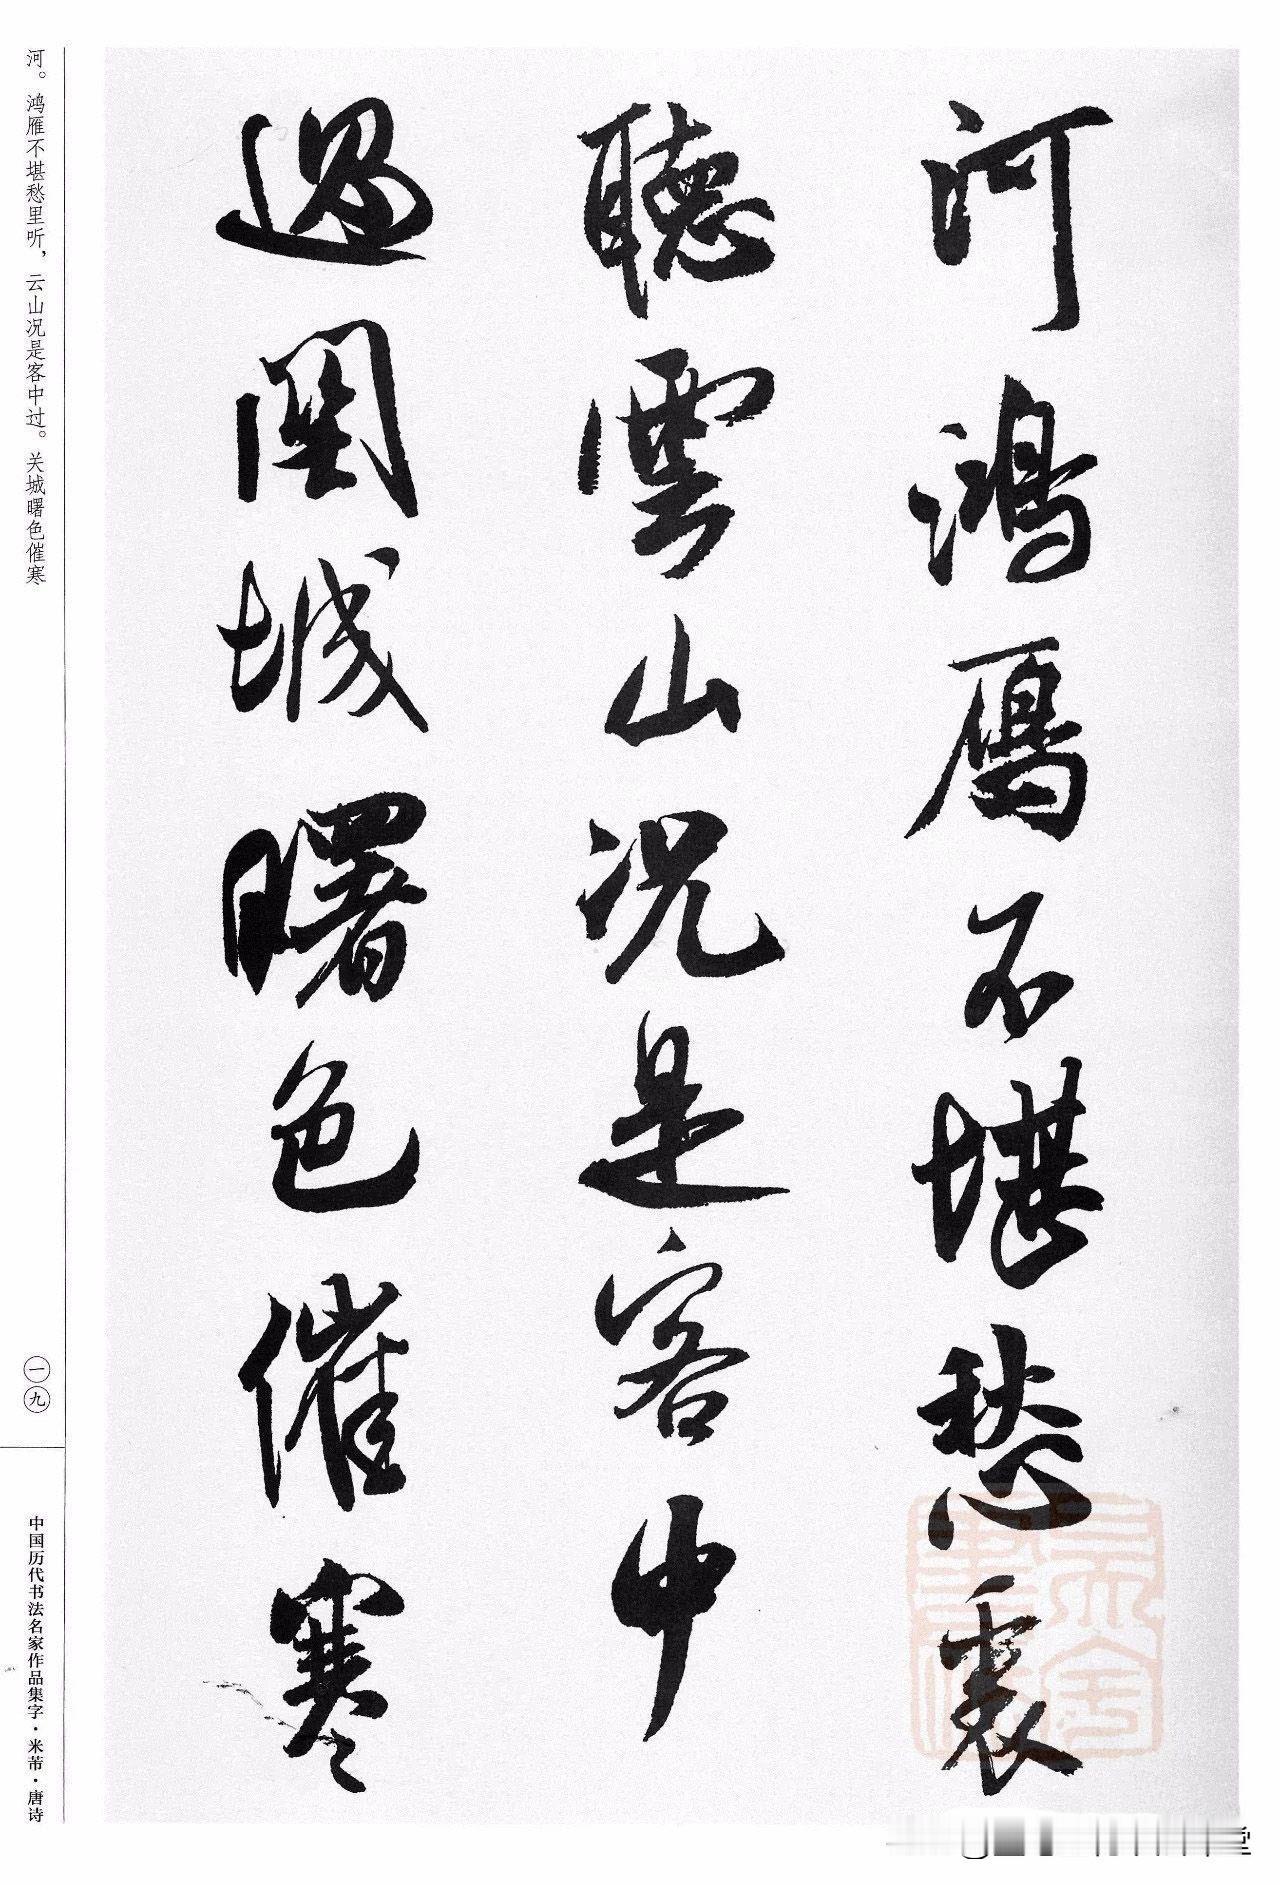 河鴻雁不堪愁裏
聽雲山況是客中
過関城曙色催寒
河。鸿雁不堪愁里听，云山况是客中过。关城曙色催寒
一九
中国历代书法名家作品集字·米芾·唐诗
堂